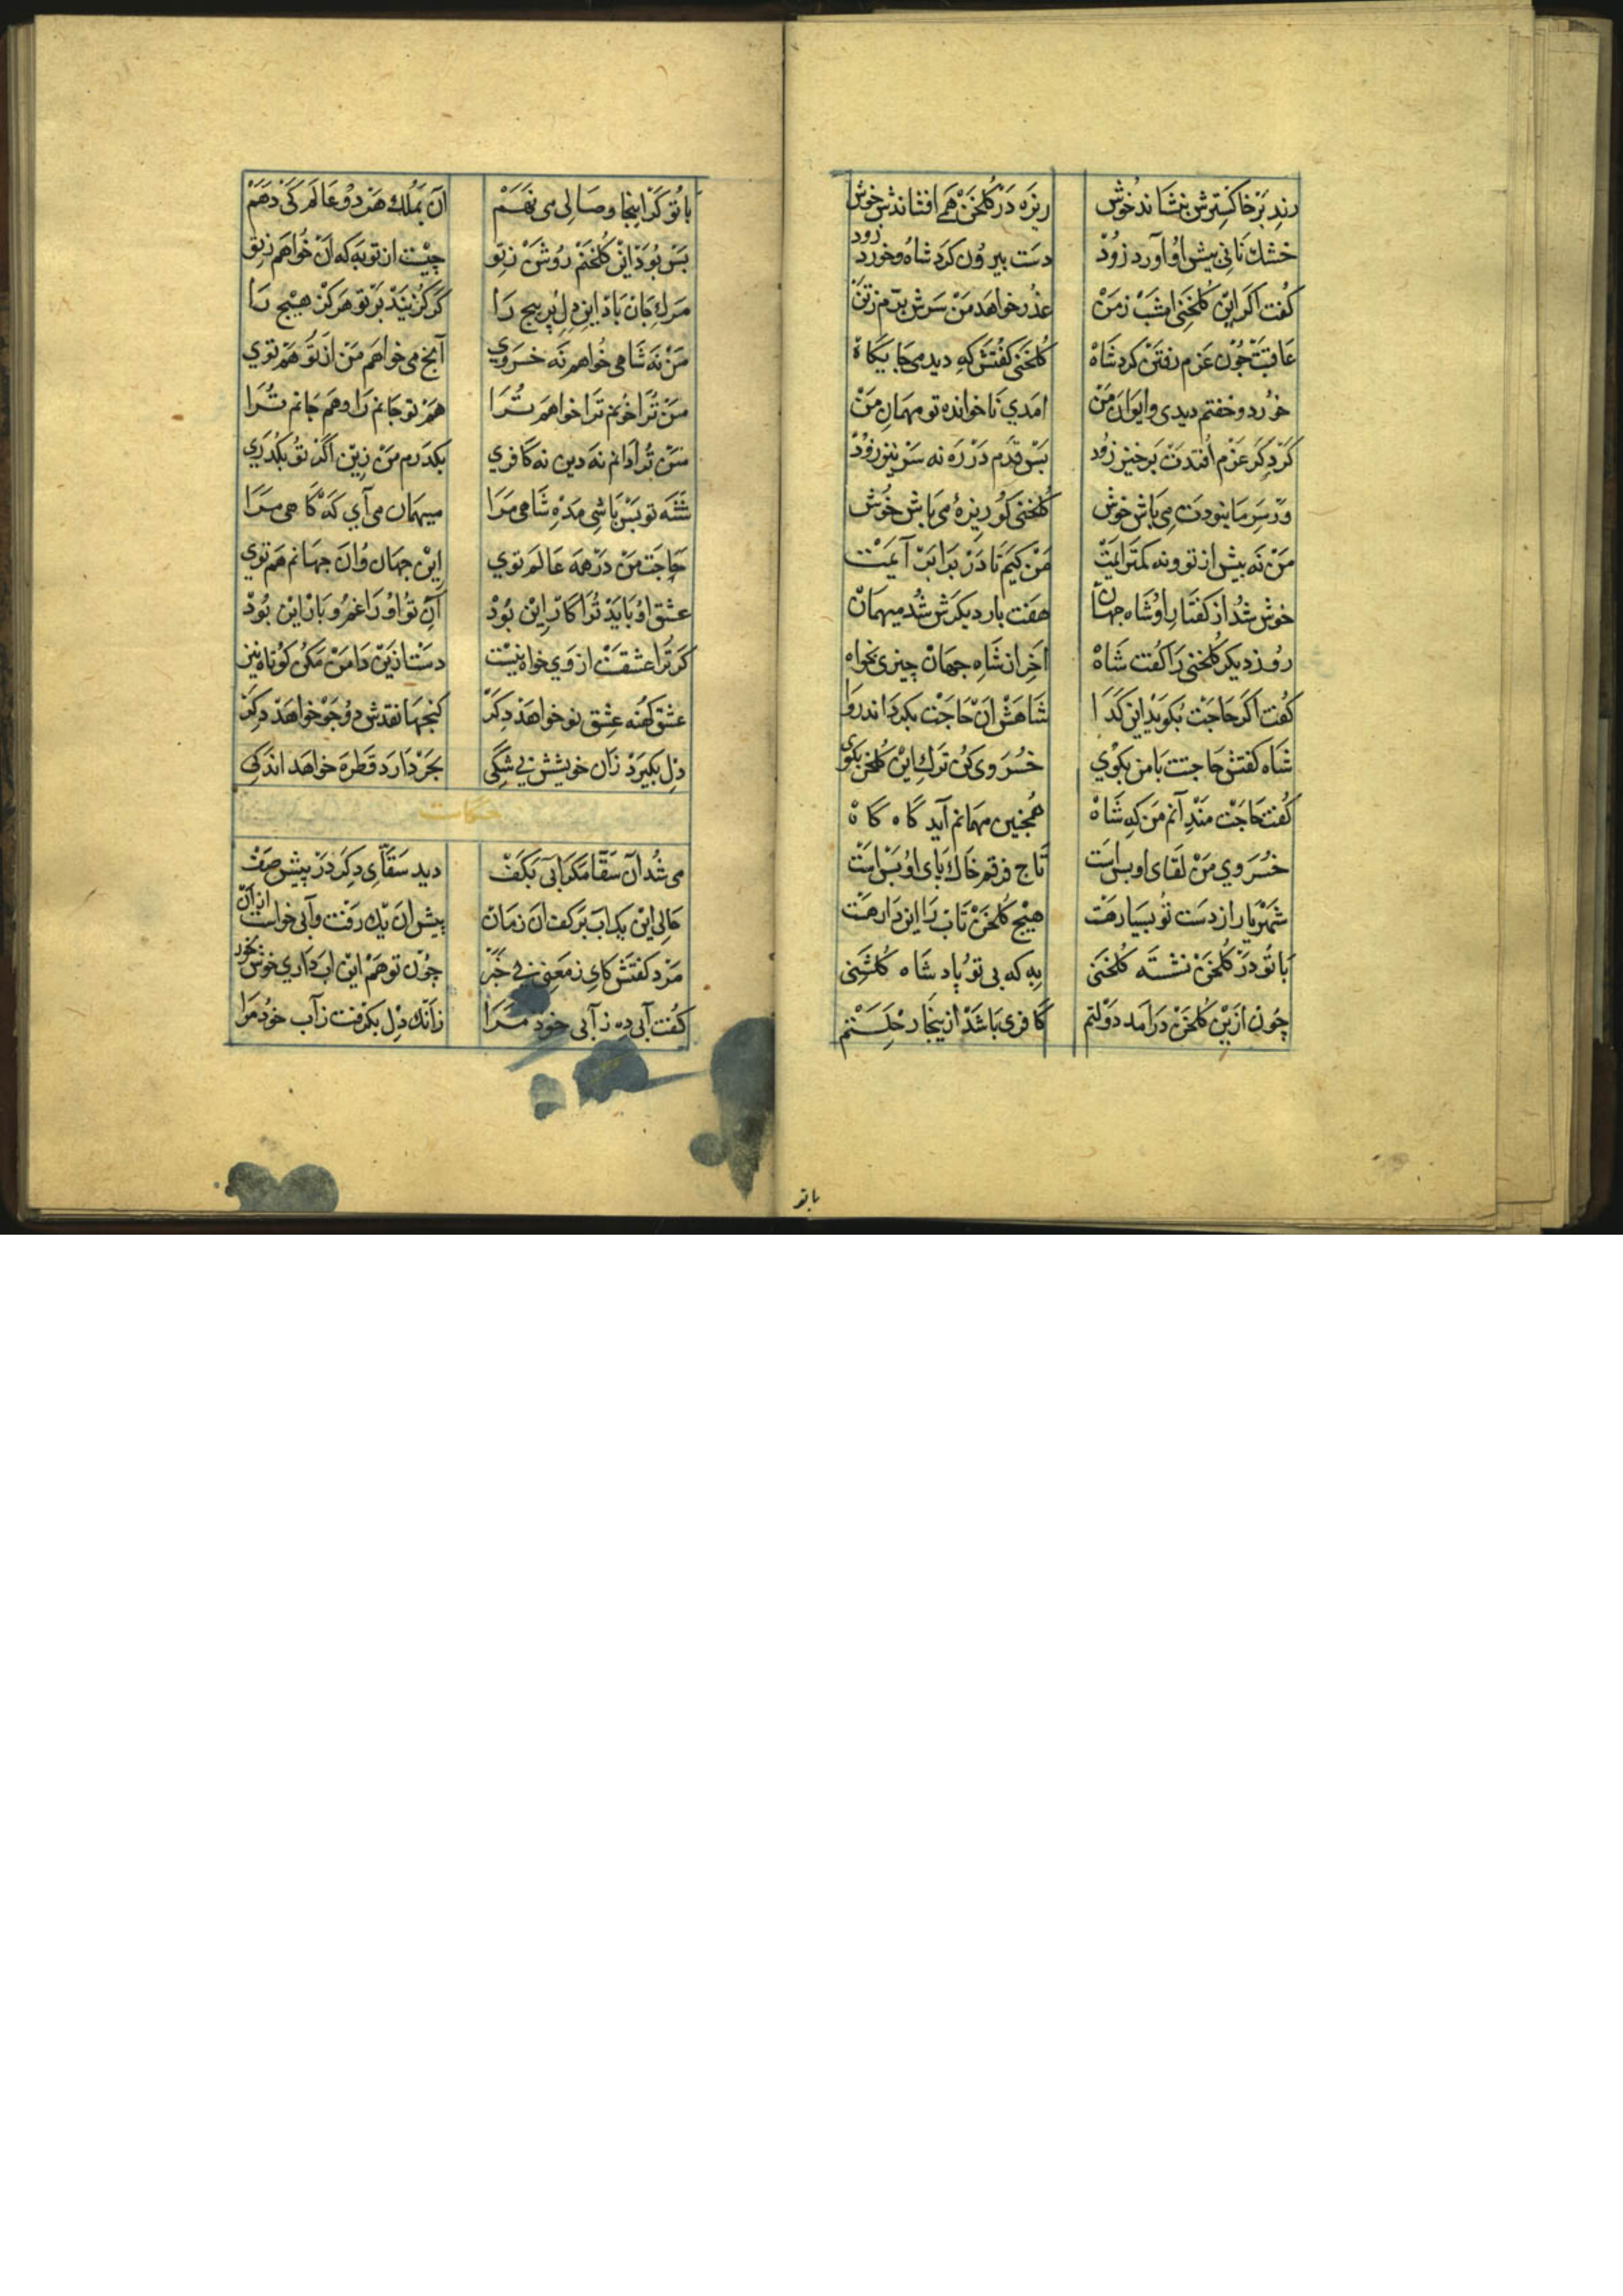 رند بر خاکسترش بنشاند خوش ریزه در گلخن همه افشاندش خوش
خشک نانی پیش او آورد زود دست بیرون کرد شاه و خورد زود
گفت اگر این گلخنی امشب ز من عذر خواهد من سرش برم ز تن
عاقبت چون عزم رفتن کرد شاه گلخنی گفتش که دیدی جایگاه
خورد و خفتم دیدی و ایوان من آمدی ناخوانده تو مهمان من
گر دگر عزم افتدت برخیز زود بس قدم در ره نه سر نیز زود
ور سر ما نبودت می باش خوش گلخنی گو ریزهٔ می باش خوش
من نه بیش از تو و نه کمتر آیمت من کیم تا در برابر آیمت
خوش شد از گفتار او شاه جهان هفت بار دیگرش شد میهمان
روز دیگر گلخنی را گفت شاه آخر از شاه جهان چیزی بخواه
گفت اگر حاجت بگوید این گدا شاهش آن حاجت بگرداند روا
شاه گفتش حاجتت با من بگوی خسروی کن ترک این گلخن بگوی
گفت حاجت مند آنم من که شاه همچنین مهمانم آید گاه گاه
خسروی من لقای او بس است تاج فرقم خاک پای او بس است
شهریار از دست تو بسیار هست هیچ گلخن تاب را این کار هست
با تو در گلخن نشسته گلخنی به که بی تو پادشاه گلشنی
چون ازین گلخن درآمد دولتم کافری باشد ازینجا رحلتم
باتو
با تو گر اینجا وصالی می نهم آن بملک هر دو عالم کی دهم
بس بود این گلخنم روشن ز تو چیست از تو به که آن خواهم ز تو
مرگ جان باد این دل پر پیچ را گر گزیند بر تو هرگز هیچ را
من نه شاهی خواهم نه خسروی آنچ می خواهم من از تو هم توی
من ترا خوهم ترا خواهم ترا هم تو جانم را و هم جانم ترا
من ترا دانم نه دین نه کافری بگذرم من زین اگر تو بگذری
شه تو بس باشی مده شاهی مرا میهمان می آی گه گاهی مرا
حاجت من در همه عالم توی این جهان و آن جهانم هم توی
عشق او باید ترا کار این بود آن تو او را غم و بار این بود
گر ترا عشقست از وی خواه نیست دست ازین دامن مکن کوتاه نیز
عشق کهنه عشق نو خواهد دگر گنجها نقدش دو جو خواهد دگر
دل بگیرد زان خویشش بی شکی بحر دارد قطره خواهد اندکی
حکایت
می شد آن سقا مگر آبی بکف دید سقای دگر در پیش صف
حالی این یک آب بر کف آن زمان پیش آن یک رفت و آبی خواست از آن
مرد گفتش کای ز معنی بی خبر چون تو هم این آب داری خوش بخور
گفت آبی ده ز آبی خود مرا زانک دل بگرفت ز آب خود مرا